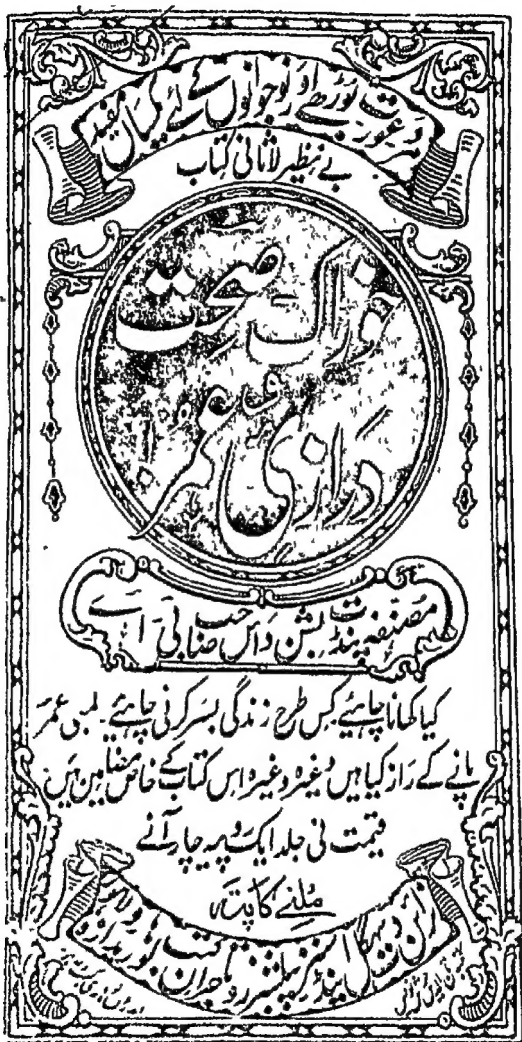 مرد و عورت بوڑھے اور نوجوانوں کے لئے یکساں مفید
بے نظیر لاثانی کتاب
خوراک صحت
و
درازی عمر
مصنفہ پنڈت بشن داس صاحب بی اے
کیا کھانا چاہیئے کس طرح زندگی بسر کرنی چاہیئے۔ لمبی عمر
پانے کے راز کیا ہیں وغیرہ وغیرہ اس کتاب کے خاص مضامین ہیں
قیمت فی جلد ایک روپیہ چار آنے
ملنے کا پتہ
نرائن دت سہگل اینڈ سنز پبلشرز و تاجران کتب لوہاری دروازہ لاہور